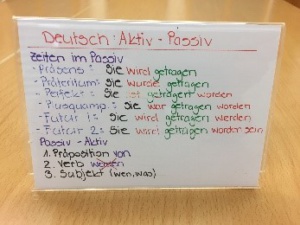 Deutsch: Aktiv - Passiv
Zeiten im Passiv
- Präsens: Sie wird getragen
- Präteritum: Sie wurde getragen
- Perfekt: Sie ist getragen worden
- Plusquamp.: Sie war getragen worden
- Futur 1: Sie wird getragen werden
- Futur 2: Sie wird getragen worden sein
Passiv - Aktiv
1. Präposition von
2. Verb
3. Subjekt (wen, was)